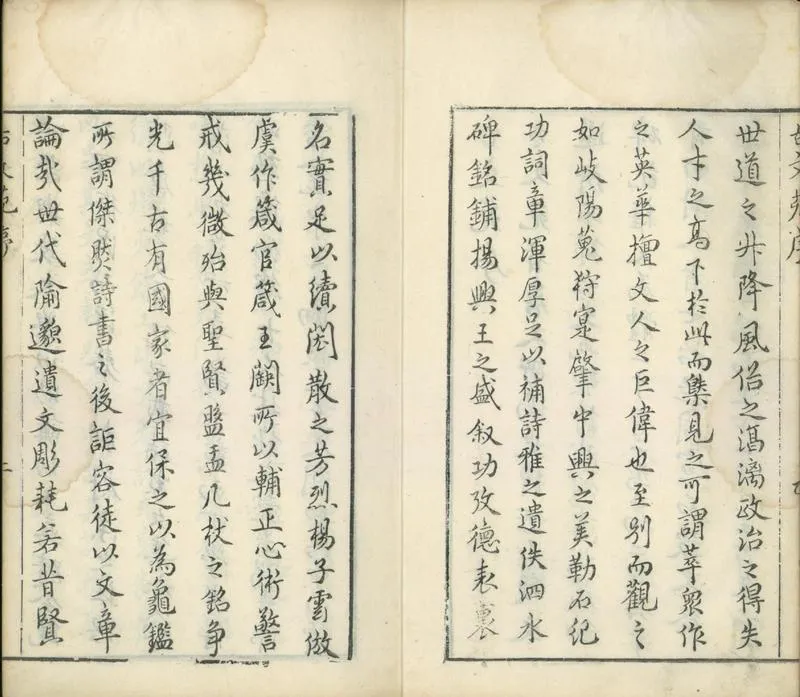 世道之升降風俗之漓政治之得失
人才之高下於此而槩見之可謂萃衆作
之英華擅文人之巨偉也至別而觀之
如岐陽蒐狩寔肇中興之美勒石紀
功詞章渾厚足以補詩雅之遺佚泗水
碑銘鋪揚興王之盛叙功攷德表裏
名實足以續閎散之芳烈楊子雲倣
虞作箴官箴王闕所以輔正心術警
戒幾微殆與聖賢盤盂几杖之銘争
光千古有國家者宜保之以為龜鑑
所謂傑然詩書之後詎容徒以文章
論哉世代隃邈遺文彫耗若昔賢